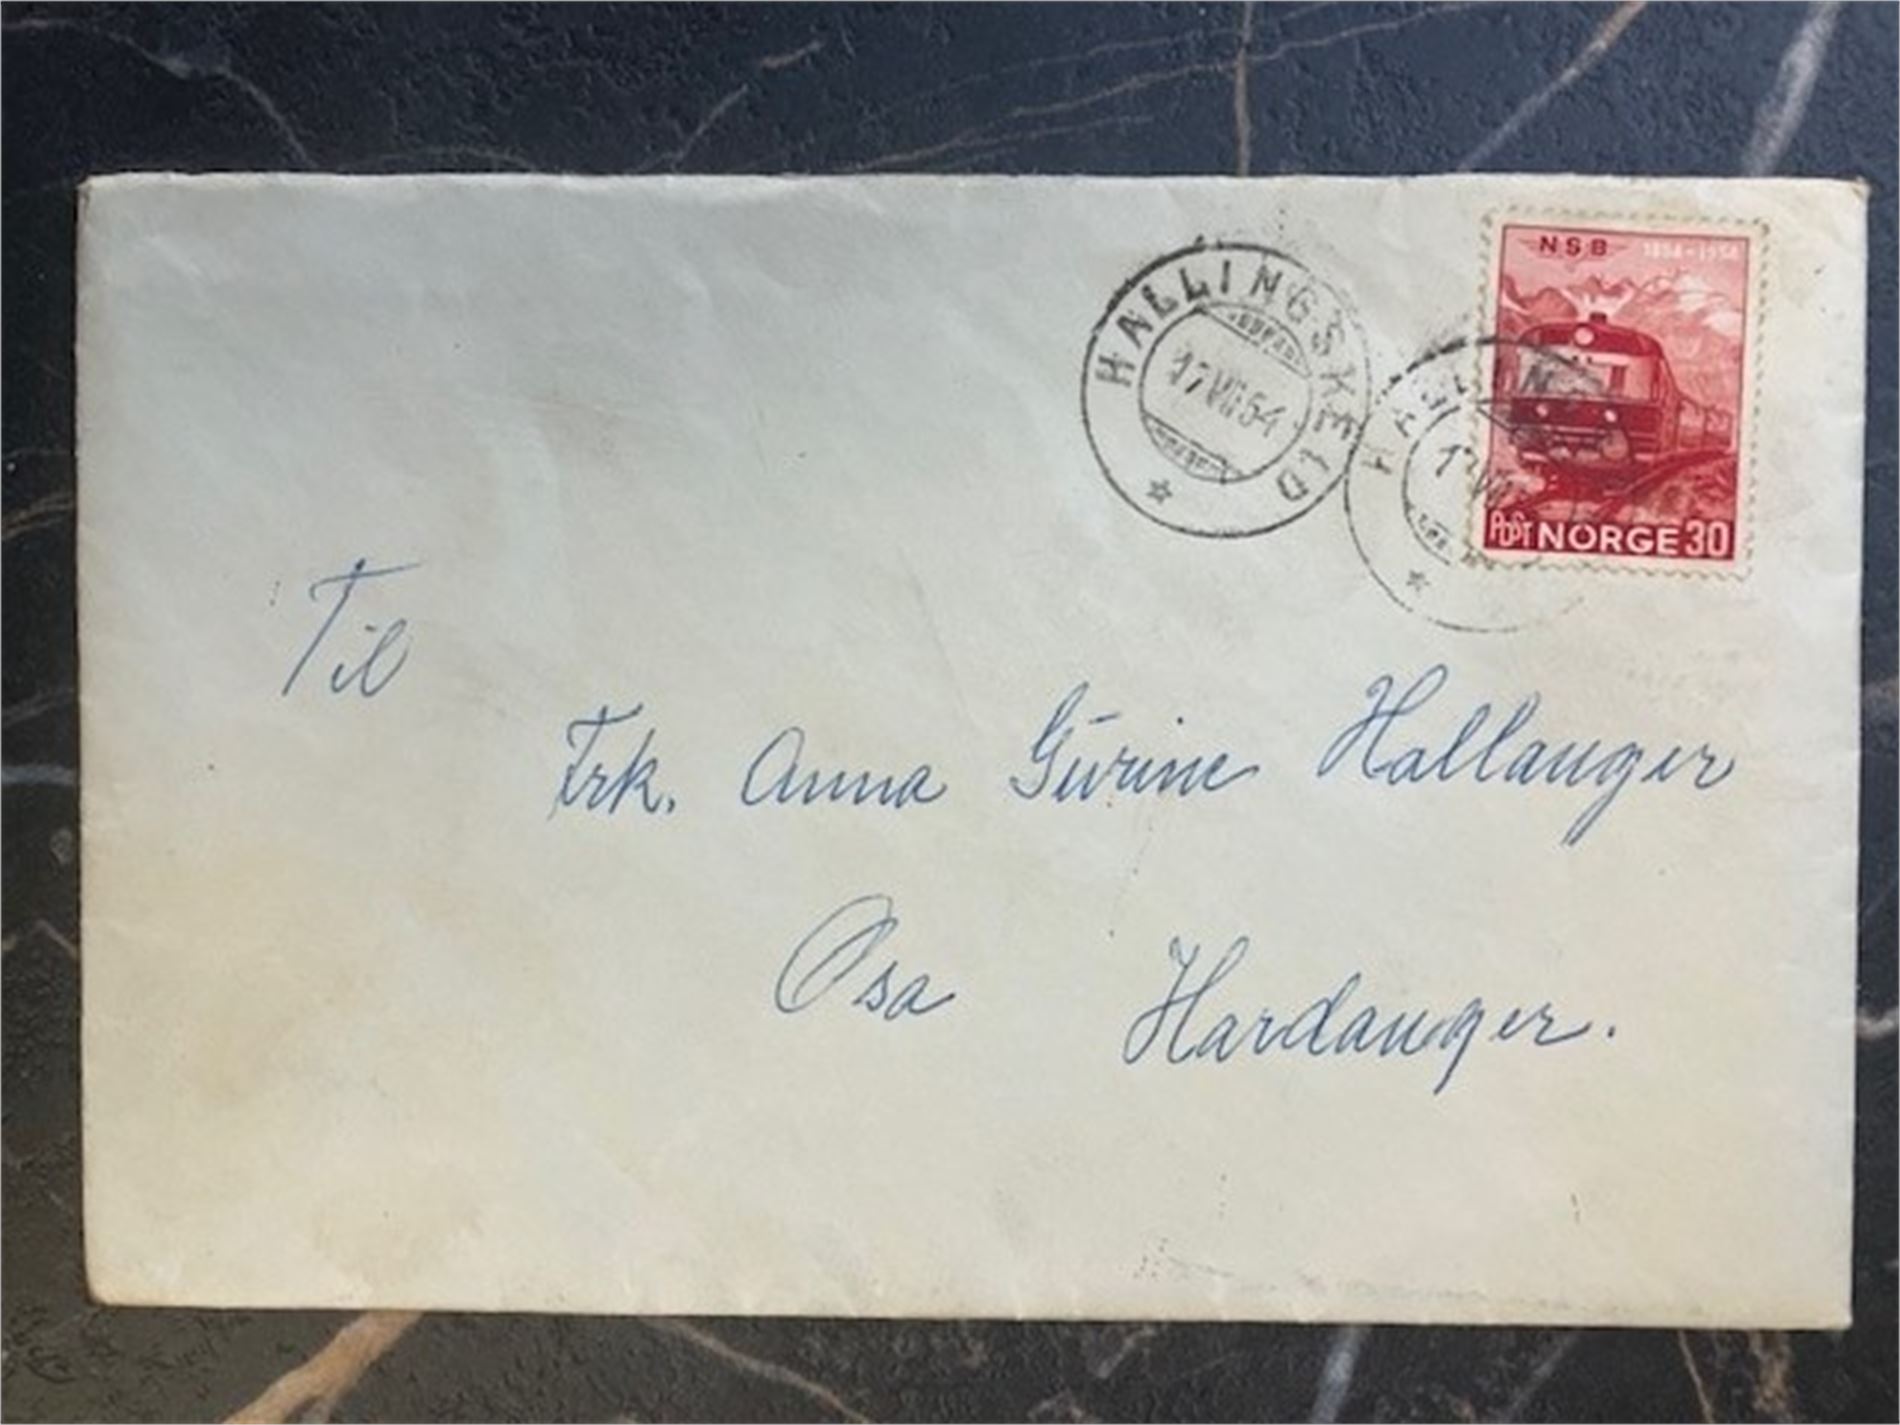 NSB 1854-1954
HALLINGSKEID
17 VII 54
POST NORGE 30
Til
Frk. Anna Gurine Hallanger
Osa Hardanger.